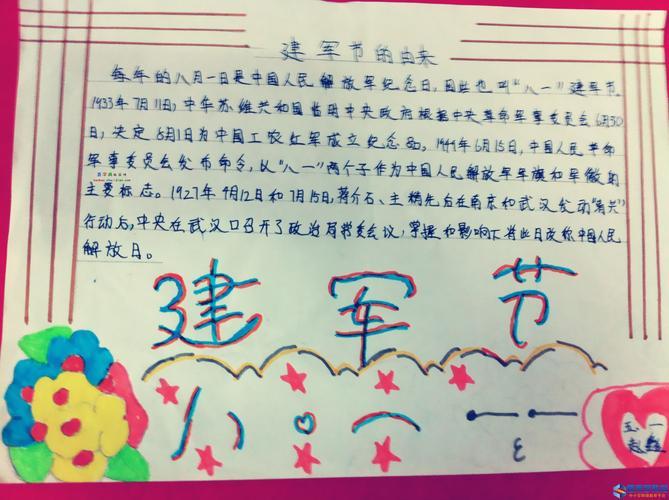 建军节的由来
每年的八月一日是中国人民解放军纪念日,因此也叫"八一"建军节。
1933年7月11日,中华苏维共和国临时中央政府根据中央革命军事委员会6月30
日,决定8月1日为中国工农红军成立纪念日。1949年6月15日,中国人民革命
军事委员会发布命令,以"八一"两个子作为中国人民解放军军旗和军徽的
主要标志。1927年4月12日和7月15日,蒋介石、主精先后在南京和武汉发动"清共"
行动后,中央在武汉口召开了政治局常委会议,掌握和影响下将此日改称中国人民
解放日。
建军节
八。一
五一